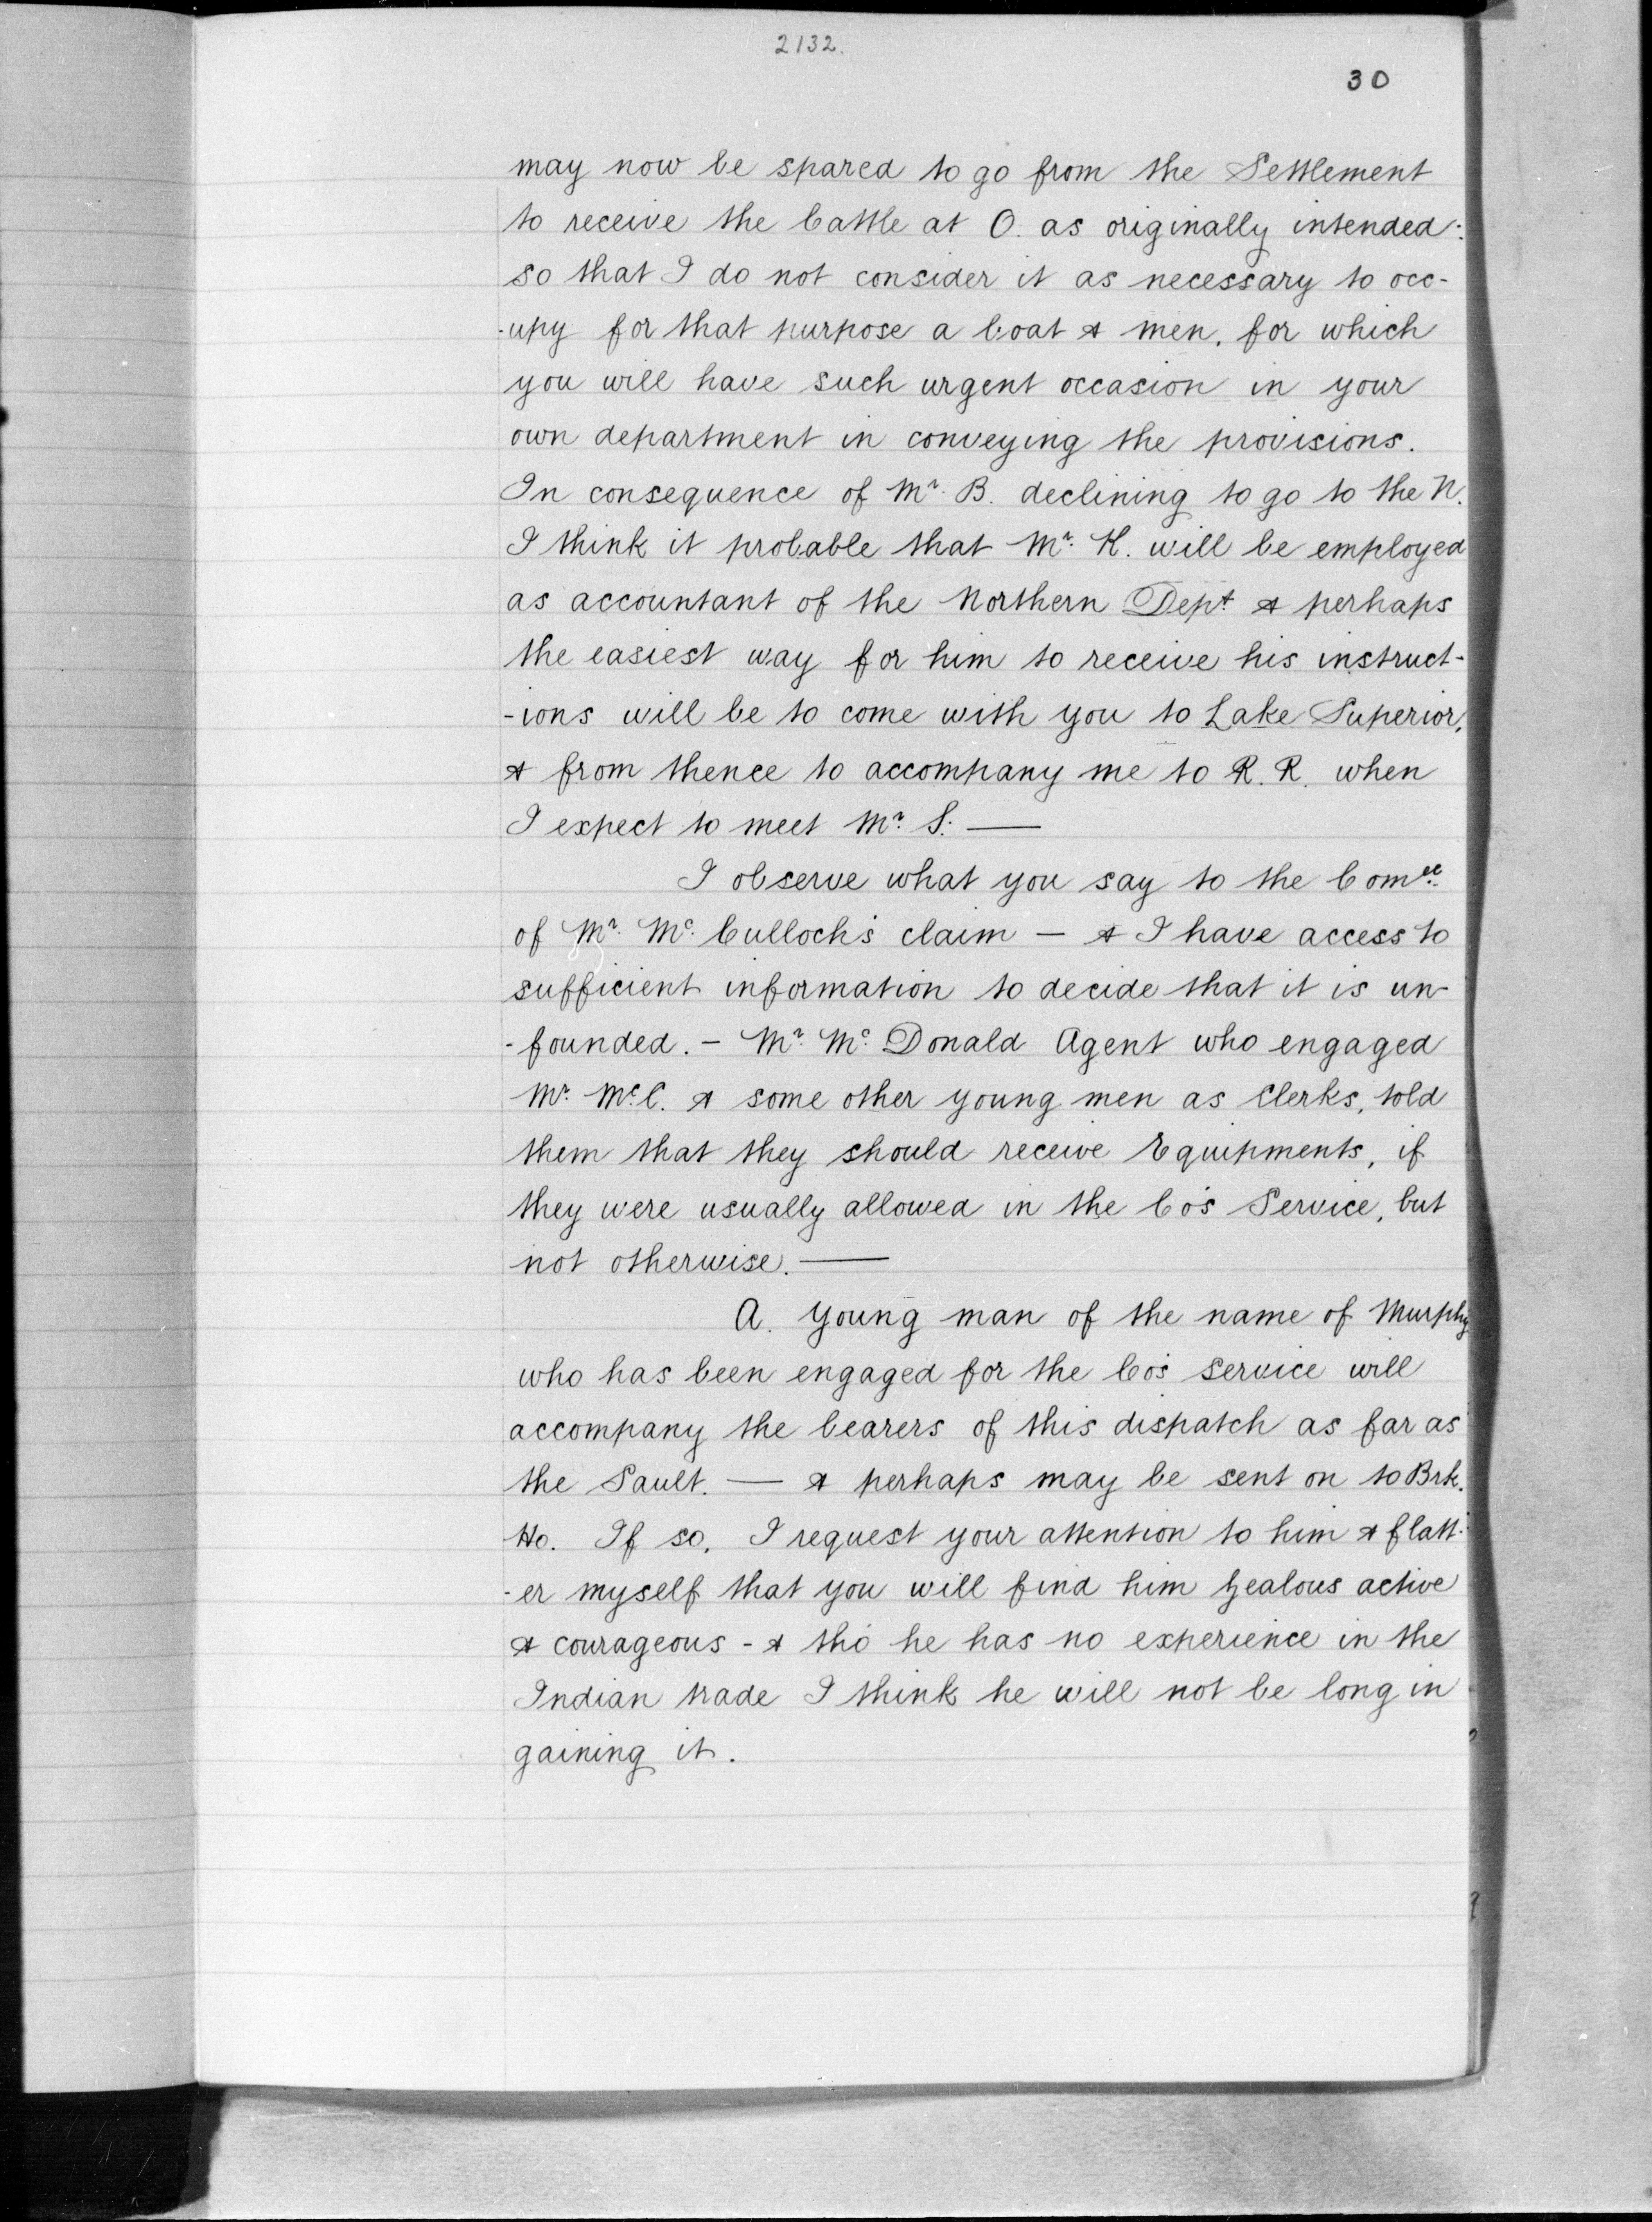 2132.
30
may now be spared to go from the Settlement
to receive the Cattle at O. as originally intended:
so that I do not consider it as necessary to occ-
-upy for that purpose a boat & men, for which
you will have such urgent occasion in your
own department in conveying the provisions.
In consequence of Mr. B. declining to go to the N.
I think it probable that Mr. H. will be employed
as accountant of the Northern Dept & perhaps
the easiest way for him to receive his instruct-
-ions will be to come with you to Lake Superior,
& from thence to accompany me to R. R. when
I expect to meet Mr. S. —
I observe what you say to the Comee.
of Mr. Mc. Culloch's claim — & I have access to
sufficient information to decide that it is un-
-founded. — Mr. Mc. Donald Agent who engaged
Mr. Mc.C. & some other young men as Clerks, told
them that they should receive Equipments, if
they were usually allowed in the Co's Service, but
not otherwise. —
A. young man of the name of Murphy
who has been engaged for the Co's service will
accompany the bearers of this dispatch as far as
the Sault. — & perhaps may be sent on to Brk.
Ho. If so, I request your attention to him & flatt-
-er myself that you will find him zealous active
& courageous - & tho' he has no experience in the
Indian trade I think he will not be long in
gaining it.